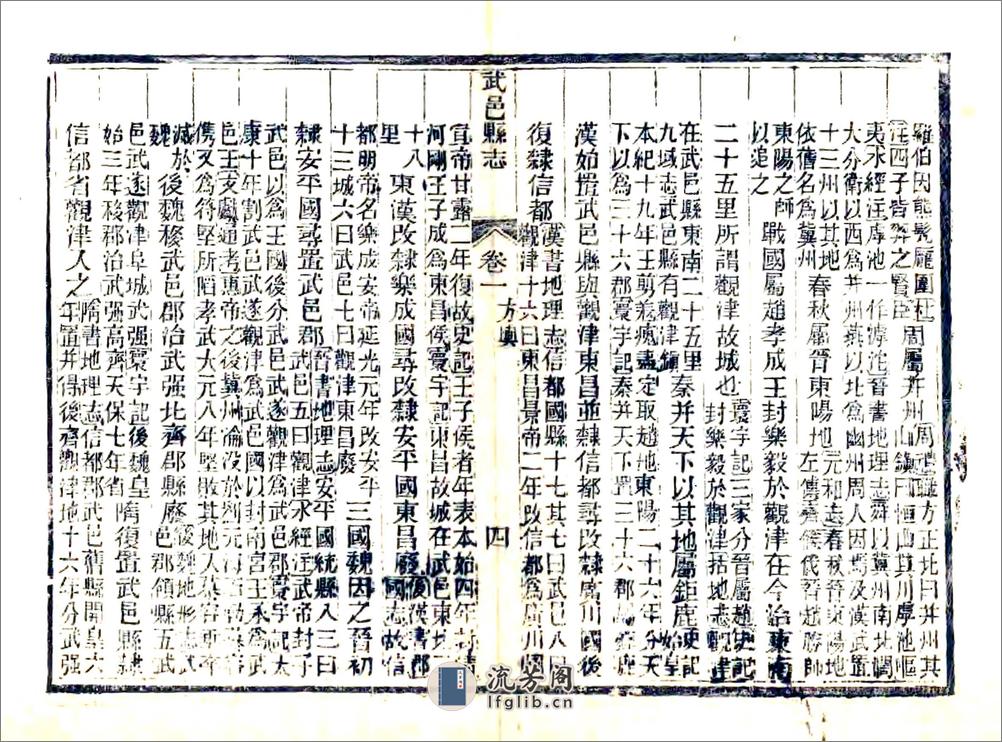 羅伯因熊髡龐圉杜
注四子皆羿之賢臣
周屬并州
周禮職方正北曰并州其
山鎮曰恒山其川虖池嘔
夷水經注虖池一作滹沱晉書地理志舜以冀州南北闊
大分衛以西為并州燕以北為幽州周人因焉及漢武置
十三州以其地
依舊名為冀州
春秋屬晉東陽地
元和志春秋晉地
左傳齊侯伐晉趙勝帥
東陽之師
以追之
戰國屬趙孝成王封樂毅於觀津在今治東南
二十五里所謂觀津故城也
寰宇記三家分晉屬趙史記
封樂毅於觀津括地志觀津
在武邑縣東南二十五里
九域志武邑有觀津鎮
秦并天下以其地屬鉅鹿
史記始皇
本紀十九年王翦羌瘣盡定取趙地東陽二十六年分天
下以為三十六郡寰宇記秦并天下置三十六郡
漢始置武邑縣與觀津東昌並隸信都尋改隸廣川國後
復隸信都
漢書地理志信都國縣十七其七曰武邑八曰
觀津十六曰東昌景帝二年改信都為廣川國
武邑縣志
卷一
方輿
四
宣帝甘露二年復故史記王子侯者年表本始四年封清
河剛王子成為東昌侯寰宇記東昌故城在武邑東北
十八
里
東漢改隸樂成國尋改隸安平國東昌廢
後漢書郡
國志故信
都明帝名樂成安帝延光元年改安平
十三城六曰武邑七曰觀津東昌廢
三國魏因之晉初
隸安平國尋置武邑郡
晉書地理志安平國統縣八三曰
武邑五曰觀津水經注武帝封子
武邑以為王國後分武邑武遂觀津為武邑郡寰宇記太
康十年割武邑武遂觀津為武邑國以封南宮王承為武
邑王文獻通考惠帝之後冀州淪沒於
儁又為符堅所陷孝武太元八年堅敗其地入慕容垂
滅於
魏
後魏移武邑郡治武强北齊郡縣廢
後魏地形志武
邑郡領縣五武
邑武遂觀津阜城武强寰宇記後魏皇
始三年移郡治武强高齊天保七年省
隋復置武邑縣隸
信都省觀津入之
隋書地理志信都郡武邑舊縣開皇六
年置并得後齊觀津地十六年分武强
流芳阁
lfglib.cn